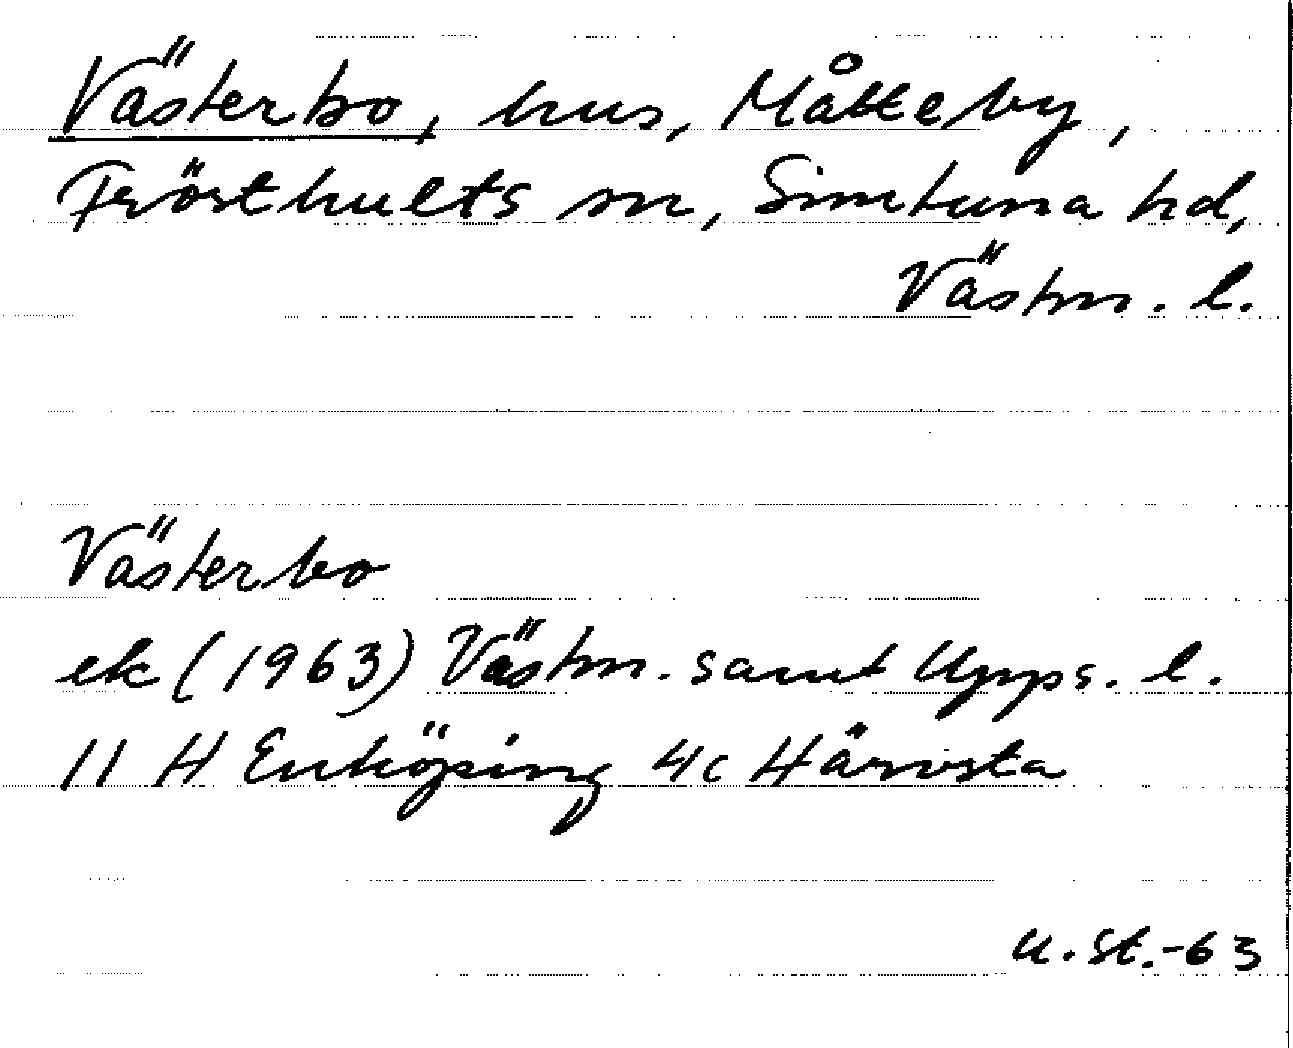 Västerbo, hus, Målteby,
Frösthults sn, Simtuna hd,
Västm. l.
Västerbo
ek (1963) Västm. samt Upps. l.
11 H Enköping 4c Härvsta
U. St. -63